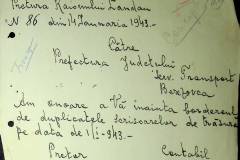 Pretura Raionului Landau
N 86 din 14 Januaria 1943.-
Către
Prefectura Judetului
Serv. Transport
Berezovca
Am onoare a Vă inainta borderoul
de duplicatele scrisorilor de trăsura
pe data de 1 I-943.-
Pretor
Contabil